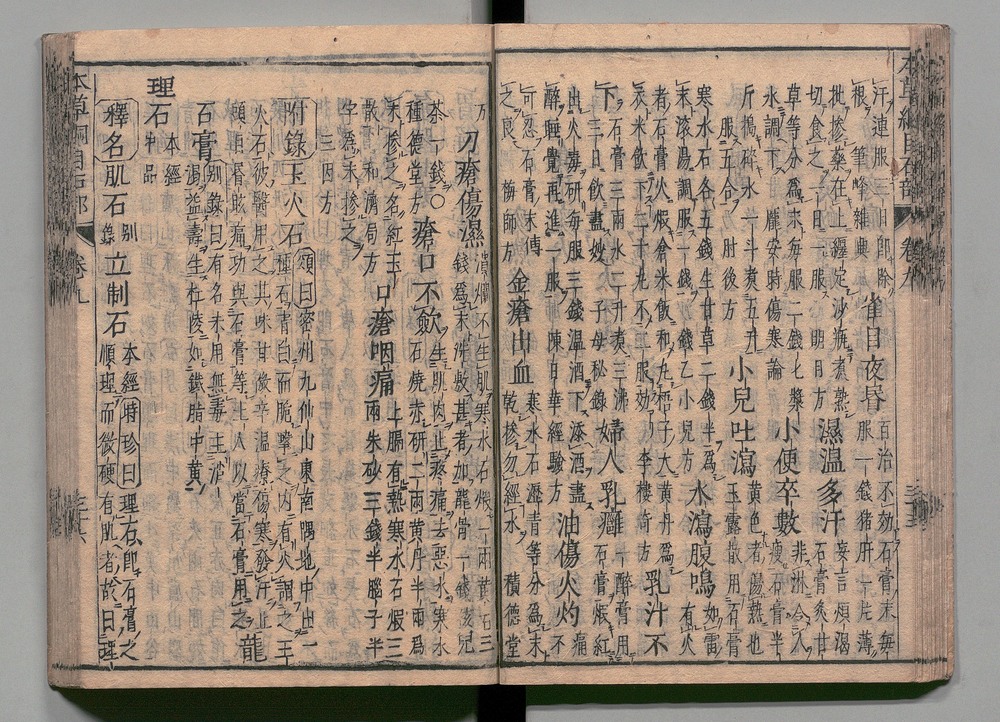 汗連服三日即除筆峰雜興雀目夜昏百治不効石膏末毎
服一錢猪肝一片薄
批摻藥在上纏定沙瓶煮熟
切食之一日一服明目方濕温多汗妄言煩渴石膏炙甘
草等分為末毎服二錢七漿
水調下龐安時傷寒論小便卒數非淋令人瘦石膏半
斤搗碎水一斗煮五升毎
服五合肘後方小兒吐瀉黄色者傷熱也玉露散用石膏
寒水石各五錢生甘草二錢半為
末滚湯調服一錢錢乙小兒方水瀉腹鳴如雷有火
者石膏火煅倉米飯和丸梧子大黄丹為衣
米飲下二十丸不二服効李樓奇方乳汁不
下石膏三兩水二升煮三沸三日飲盡妙子母秘錄婦人乳癰一醉膏用石膏煅紅
出火毒研毎服三錢温酒下添酒盡
醉睡覺再進一服陳日華經驗方油傷火灼痛不
可忍石膏末傅
之良梅師方金瘡出血寒水石瀝青等分為末乾摻勿經水積德堂
方刀瘡傷濕潰爛不生肌寒水石煅一兩黄丹二
錢為末洗敷甚者加龍骨一錢孩兒
茶一錢○瘡口不斂生肌肉止疼痛去惡水寒水
石燒赤研二兩黄丹半兩為
末摻之名紅玉散和濟局方口瘡咽痛上膈有熱寒水石煅三
兩朱砂三錢半腦子半
字為末摻之三因方
附錄玉火石頌曰密州九仙山東南隅地中出一
種石青白而脆擊之内有火謂之玉
火石彼醫用之其味甘微辛温療傷寒發汗止
頭目昏眩痛功與石膏等土人以當石膏用之龍
石膏別錄曰有名未用無毒主消
渴益壽生杜陵如鐵脂中黄
理石本經中品
釋名肌石別錄立制石本經時珍曰理石即石膏之
順理而微硬有肌者故曰理
本草綱目石部 卷九